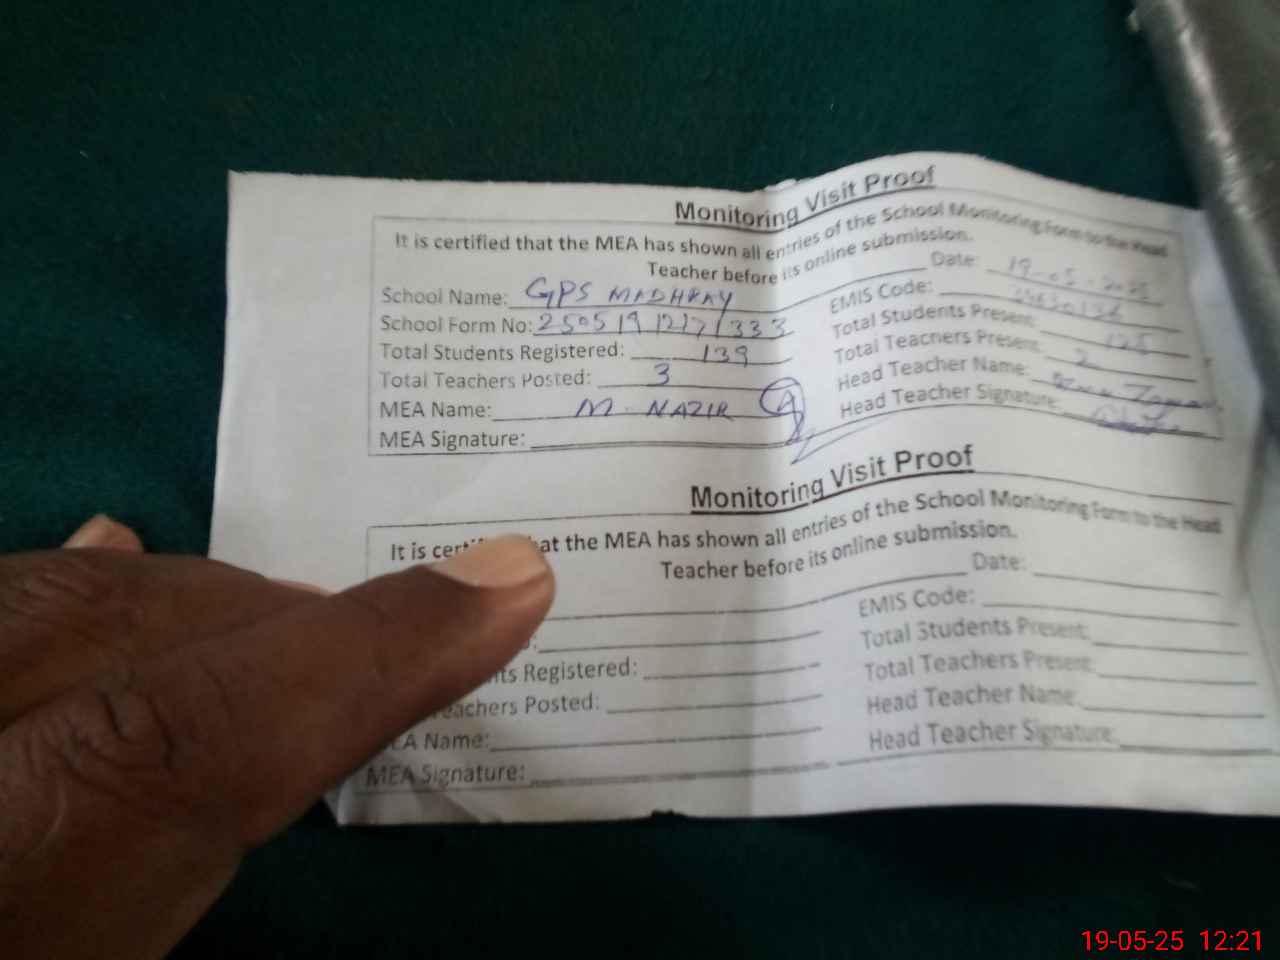 Monitoring Visit Proof
It is certified that the MEA has shown all entries of the School Monitoring Form to the Head
Teacher before its online submission.
Date: 19-05-2025
School Name: GPS MADHRAY
EMIS Code:
School Form No: 25051912171333
Total Students Present: 125
Total Students Registered: 139
Total Teachers Present: 2
Total Teachers Posted: 3
Head Teacher Name:
MEA Name: M. NAZIR
Head Teacher Signature:
MEA Signature:
Monitoring Visit Proof
It is that the MEA has shown all entries of the School Monitoring Form to the Head
Teacher before its online submission.
Date:
EMIS Code:
Total Students Present:
Registered:
Total Teachers Present:
Posted:
Head Teacher Name:
Name:
Head Teacher Signature:
MEA Signature:
19-05-25 12:21